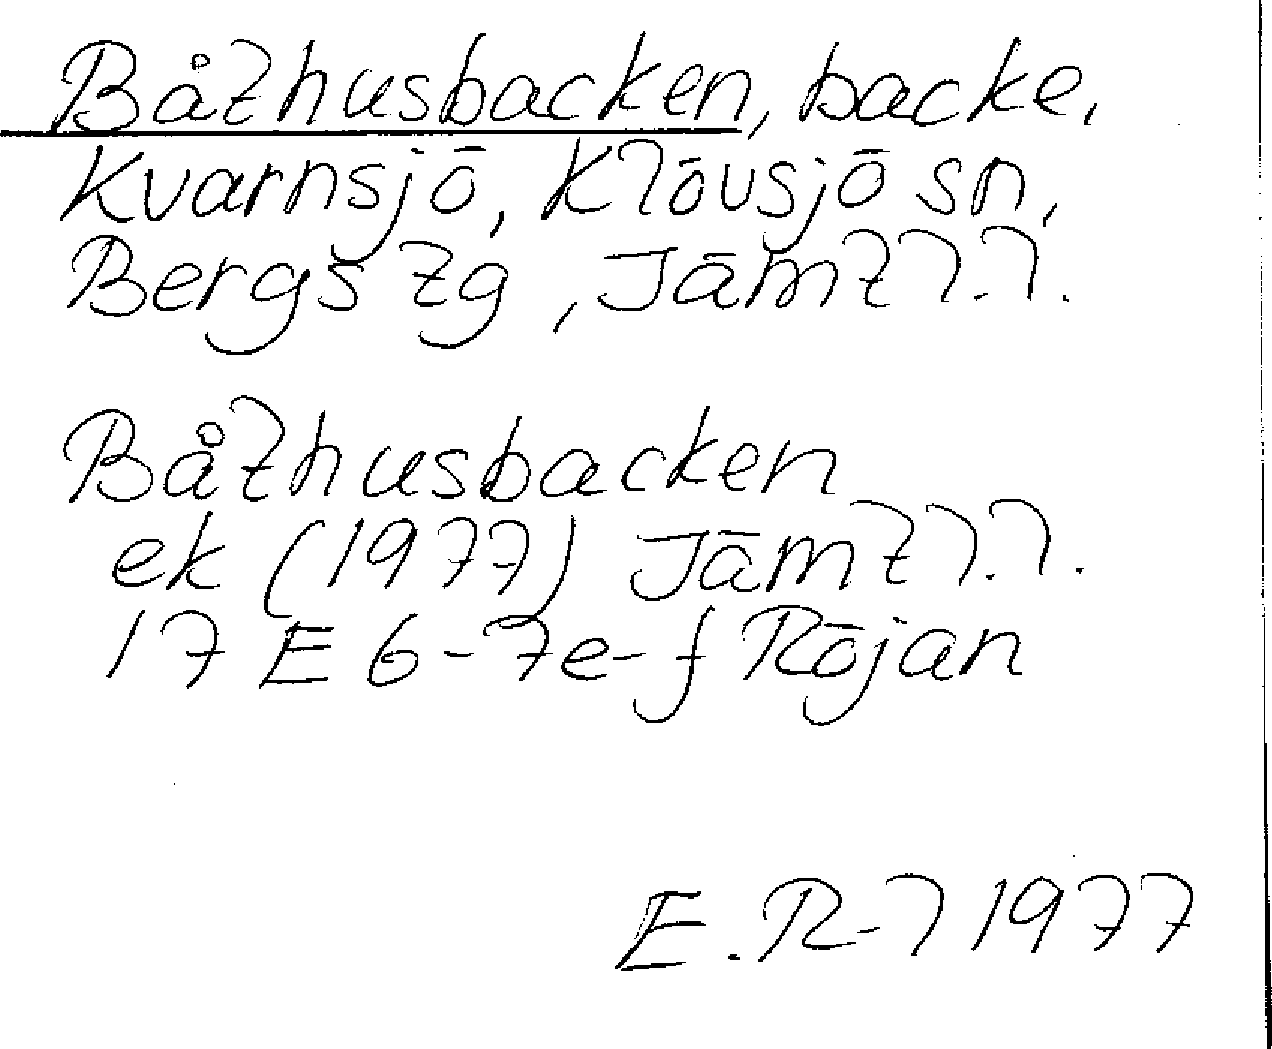 Båthusbacken, backe,
Kvarnsjö, Klövsjö sn,
Bergs tg, Jämtl.l.
Båthusbacken
ek (1977) Jämtl.l.
17 E 6-7e-f Röjan
E.R-l 1977